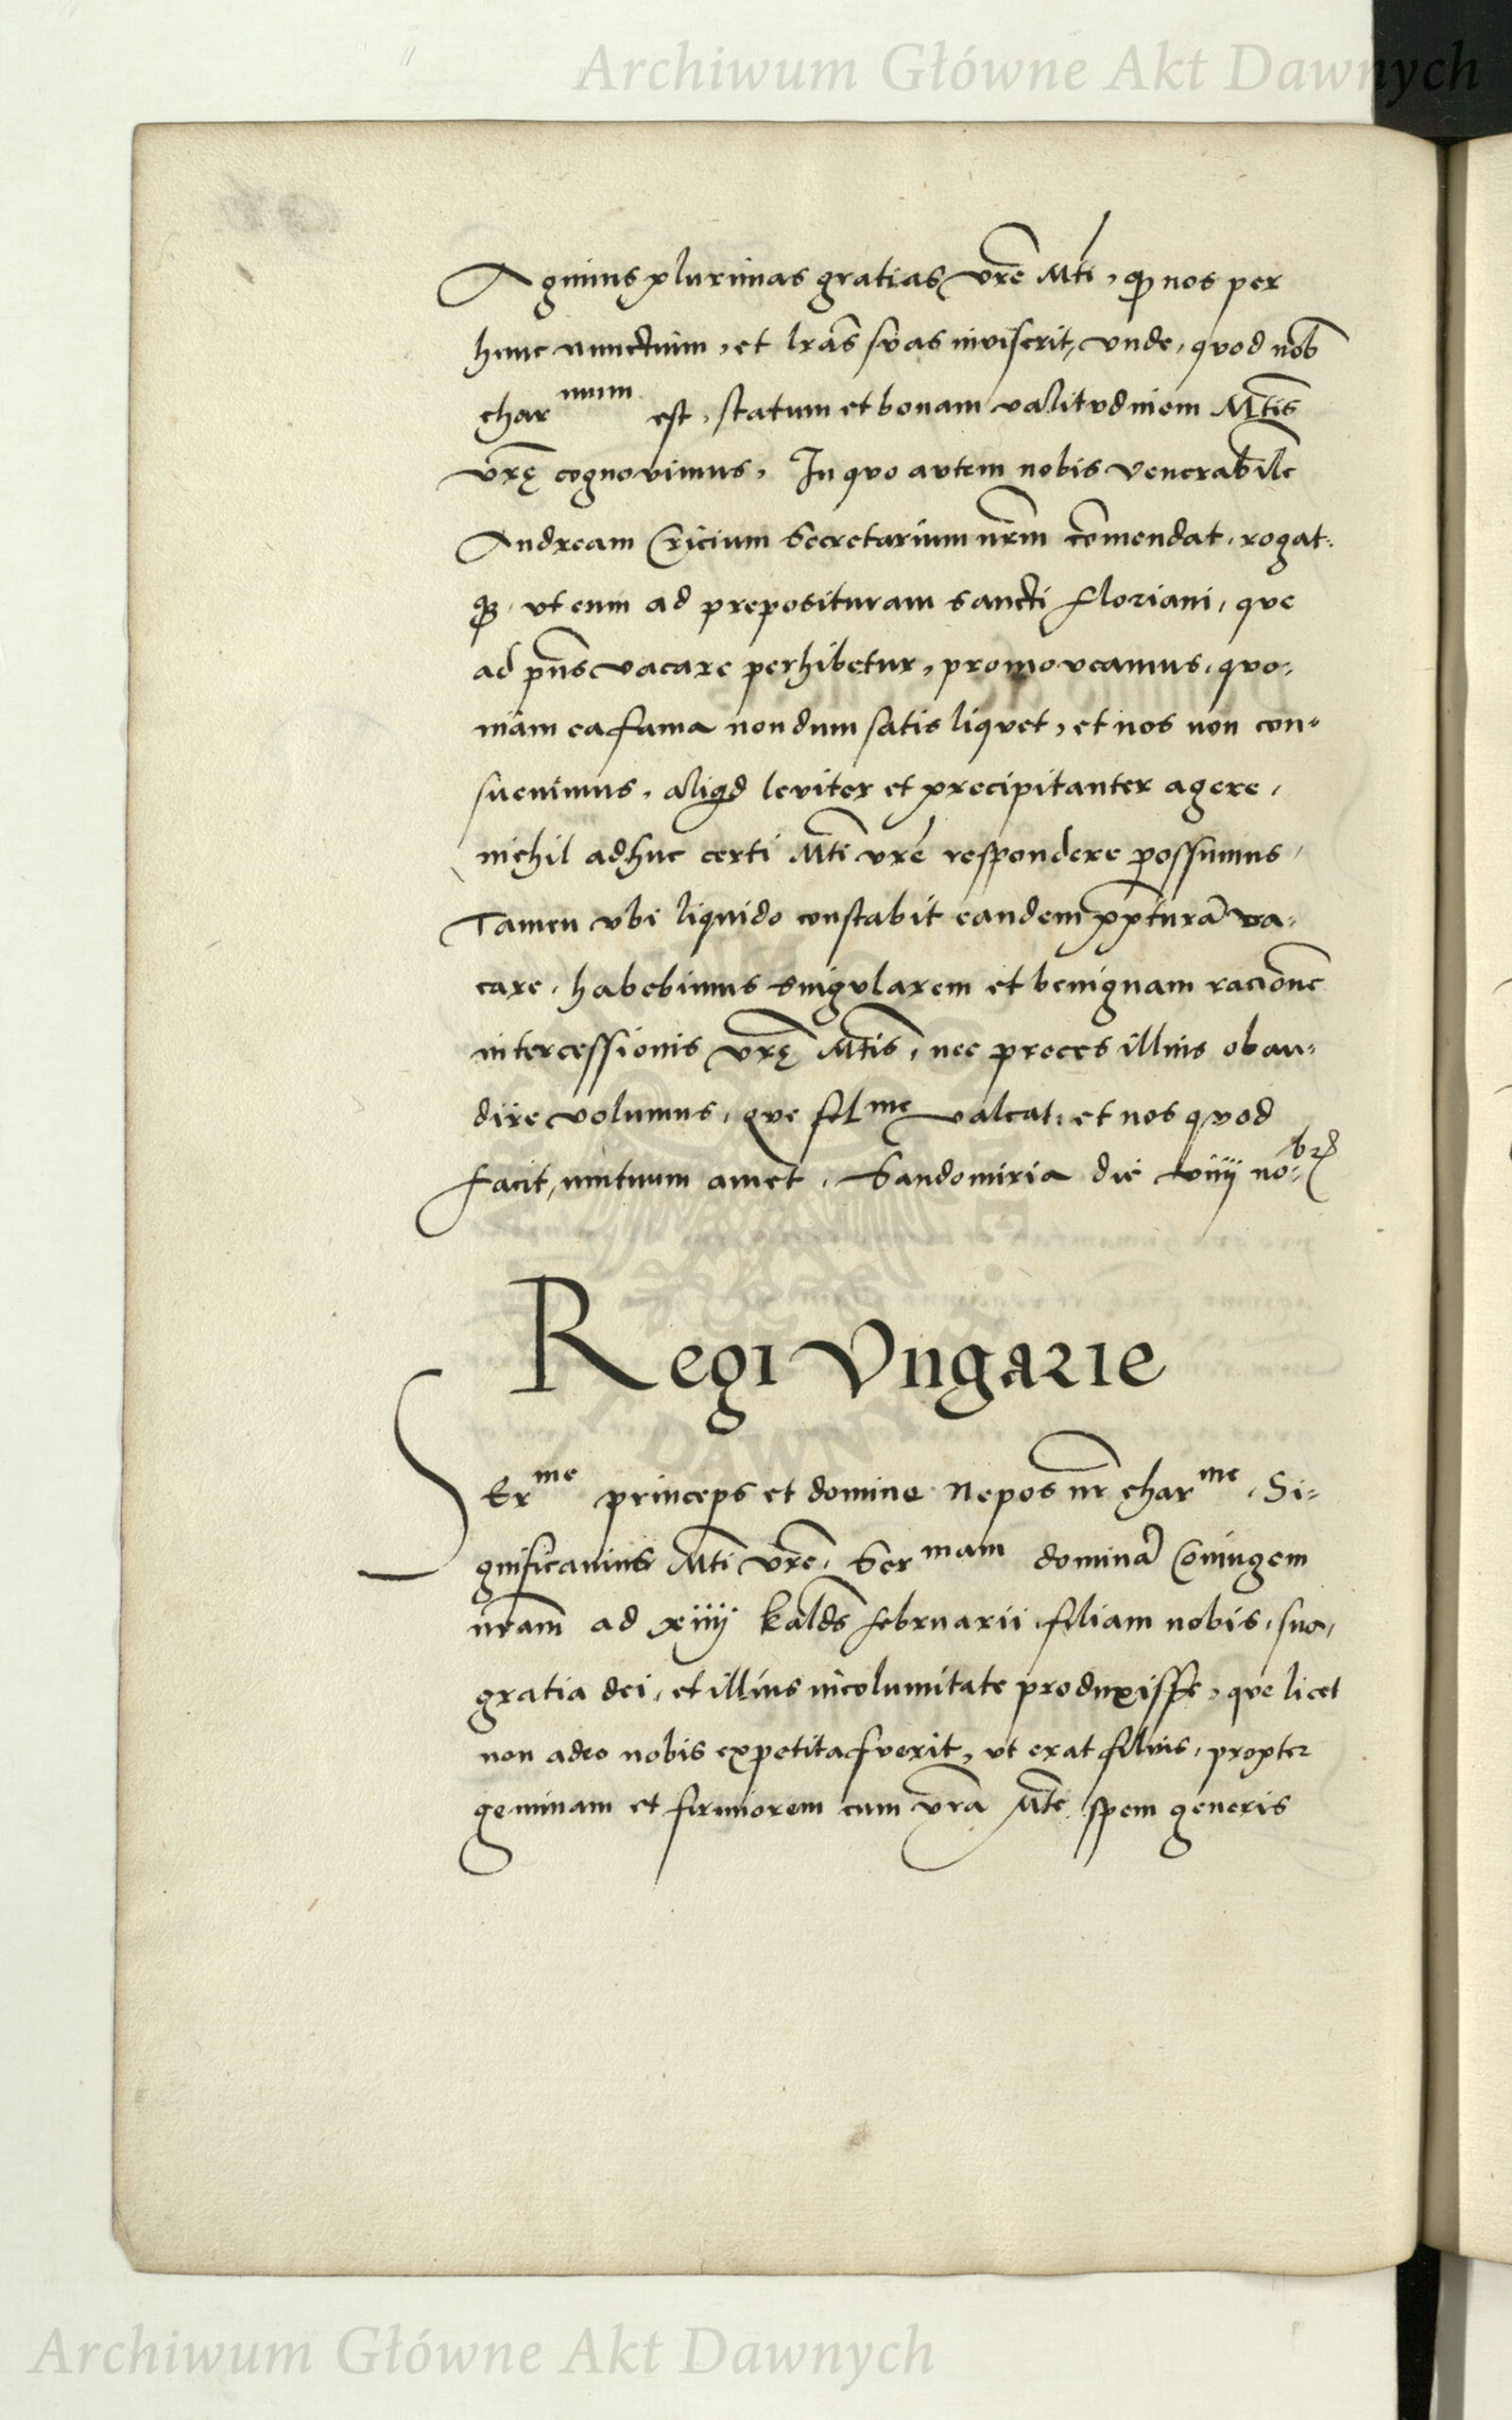 Archiwum Główne Akt Dawnych
Agimus plurimas gratias vrē Mti, qͦ nos per
hunc nunctium, et lrās sūas inviserit, vnde, quod nob̄
charmum est, statum et bonam valitudinem Mtis
vrę cognovimus, In quo autem nobis venerabilē
Andream Cricium Secretarium nrm̄ com̄endat, rogat-
qꝫ, vt eum ad preposituram sancti floriani, que
ad pn̄s vacare perhibetur, promoveamus, quo-
niam ea fama nondum satis liquet, et nos non con-
suevimus, aliqd leviter et precipitanter agere,
nichil adhuc certi Mti vrē respondere possumus,
Tamen vbi liquido constabit eandem pp̄turā va-
care, habebimus singularem et benignam racionē
intercessionis vrę Mtis, nec preces illius obau-
dire volumus, que felme valeat, et nos quod
facit, mutuum amet, Sandomiria die viiij no-br̄
Regi Vngarie
SErme princeps et domine Nepos nr̄ charme, Si-
gnificamus Mti vrē, Sermam dominā Coniugem
nrām ad xiiij kalds̄ februarii filiam nobis, sua,
gratia dei, et illius incolumitate produxisse, que licet
non adeo nobis expetita fuerit, vt erat filius, propter
geminam et firmiorem cum vrā Mte spem generis
Archiwum Główne Akt Dawnych